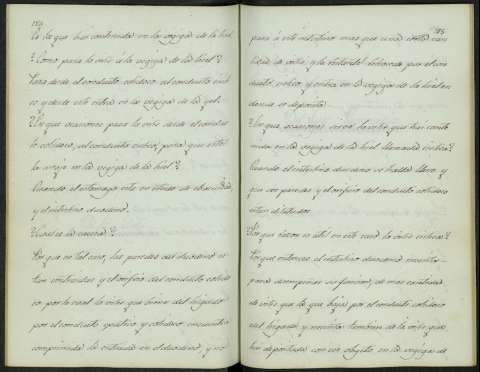 184
Es la que hay contenida en la vegiga de la hiel.
? Como pasa la vilis á la vegiga de la hiel?
Pasa desde el conducto coledoco al conducto cisti
co y desde este entra en la vegiga de la yel.
? Por que ocasiones pasa la vilis desde el conduc
to coledoco, al conducto cistico, para que este
la arroje en la vegiga de la hiel?
Cuando el estomago esta en estado de
y el intestino duodeno.
? Cual es la causa?
Por que en tal caso, las paredes del duodeno es
tan contraidas y el orificio del conducto coledo
co por lo cual la vilis que viene del higado
por el conducto epatico y coledoco encuentra
comprimida la entrada en el duodeno, y no
185
pasa á este intestino mas que una corta can
tidad de vilis, y la restante retrocede por el con
ducto cistico y entra en la vegiga de la hiel en
donde se deposita.
? En que ocasiones sirve la vilis que hay conte
nida en la vegiga de la hiel llamada cistica?
Cuando el intestino duodeno se halla lleno, y
que sus paredes y el orificio del conducto coledoco
estan dilatados.
? Por que razon es util en este caso la vilis cistica?
Por que entonces el intestino duodeno necesita
para desempeñar su funcion, de mas cantidad
de vilis que la que baja por el conducto coledoco
del higado y necesita tambien de la vilis que
hay depositada con ese objeto en la vegiga de